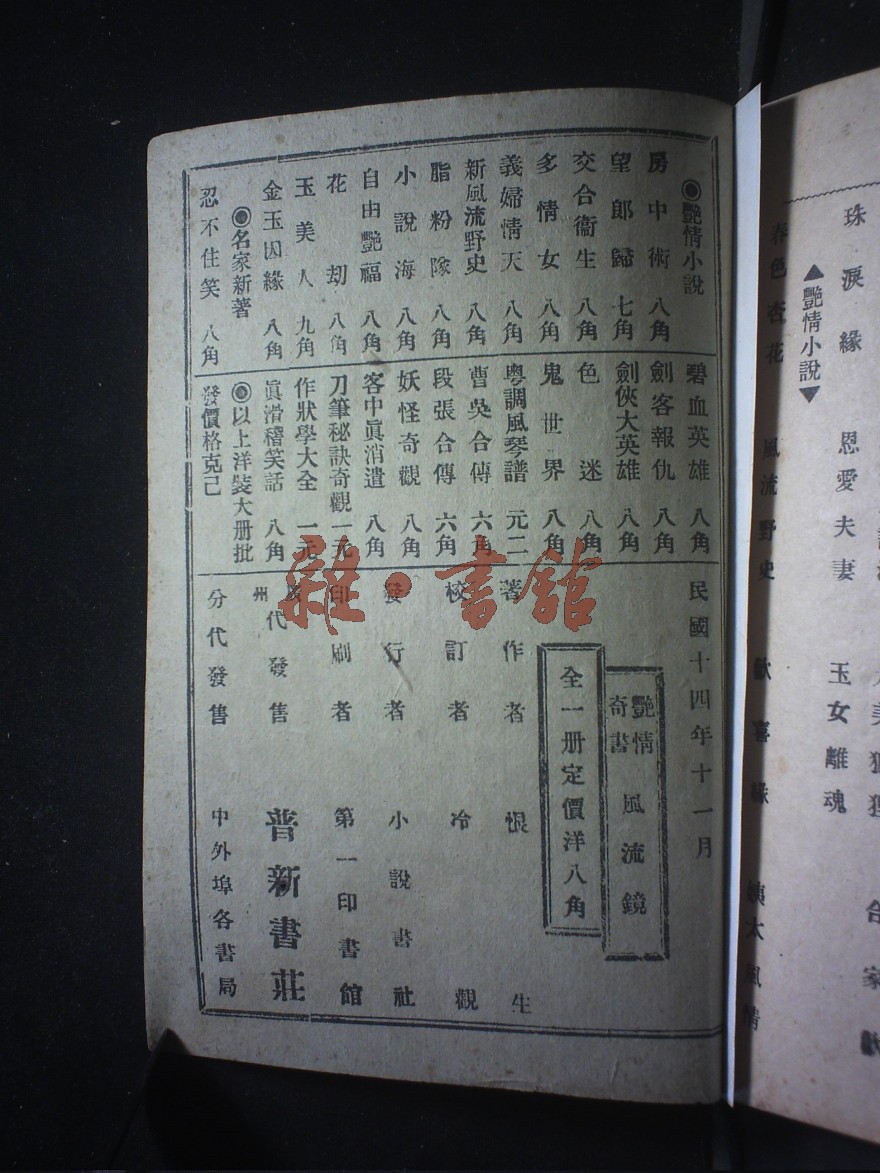 ◉艷情小說
房中術 八角
望郎歸 七角
交合衞生 八角
多情女 八角
義婦情天 八角
新風流野史 八角
脂粉隊 八角
小說海 八角
自由艷福 八角
花劫 八角
玉美人 九角
金玉因緣 八角
◉名家新著
忍不住笑 八角
碧血英雄 八角
劍客報仇 八角
劍俠大英雄 八角
色迷 八角
鬼世界 八角
粵調風琴譜 元二
曹吳合傳 六角
段張合傳 六角
妖怪奇觀 八角
客中眞消遣 八角
刀筆秘訣奇觀 一元
作狀學大全 一元
眞滑稽笑話 八角
◉以上洋裝大册批
發價格克己
民國十四年十一月
艷情奇書 風流鏡
全一册定價洋八角
著作者 恨生
校訂者 冷觀
發行者 小說書社
印刷者 第一印書館
州代發售 普新書莊
分代發售 中外埠各書局
雜·書館
珠淚緣 恩愛夫妻 玉女離魂
▲艷情小說▼
春色杏花 風流野史 歡喜緣 姨太風情